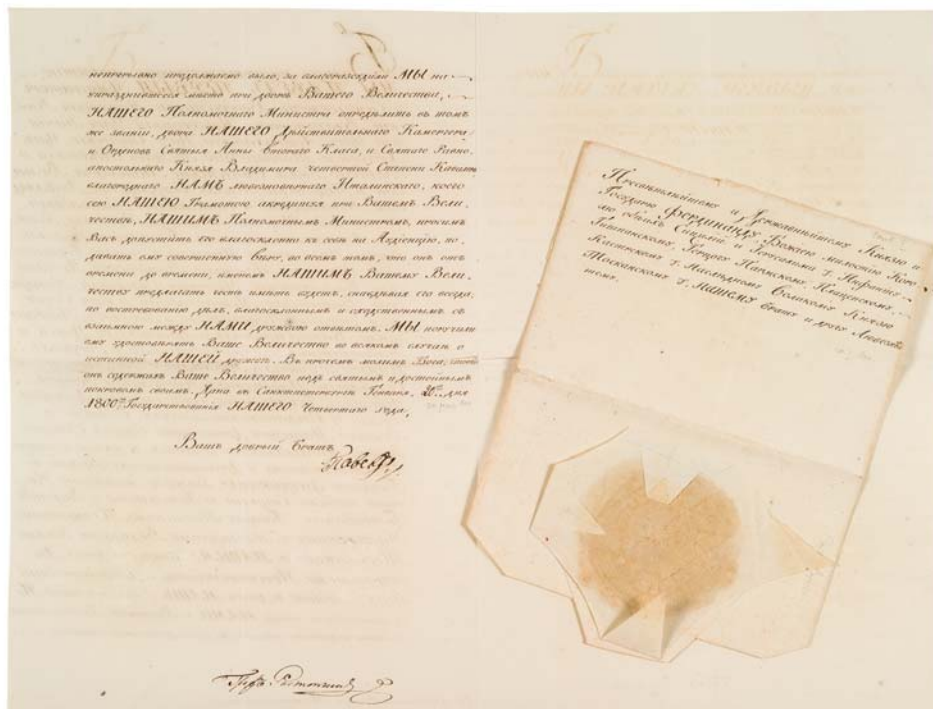 непрерывно продолжаемо было, за благоразсудили МЫ на
упразднившееся место при дворѣ Вашего Величества,
НАШЕГО Полномочнаго Министра опредѣлить въ томъ
же званіи, двора НАШЕГО Дѣйствительнаго Камергера
и Орденовъ Святыя Анны втораго Класа, и Святаго Равно-
апостольнаго Князя Владимира четвертой Степени Кавалера
благороднаго НАМЪ любезновѣрнаго Италинскаго, коего
сею НАШЕЮ Грамотою акредитуя при Вашемъ Вели-
чествѣ, НАШИМЪ Полномочнымъ Министромъ, просимъ
Васъ допустить его благосклонно къ себѣ на Аудіенцію, по-
давать ему совершенную вѣру, во всемъ томъ, что онъ отъ
времени до времени, именемъ НАШИМЪ Вашему Вели-
честву предлагать честь имѣть будетъ, снабдѣвая его всегда,
по востребованію дѣлъ, благосклоннымъ и сходственнымъ съ
взаимною между НАМИ дружбою отвѣтомъ. МЫ поручили
ему удостовѣрять Ваше Величество во всякомъ случаѣ о
истинной НАШЕЙ дружбѣ. Въ прочемъ молимъ Бога, чтобъ
онъ содержалъ Ваше Величество подъ святымъ и достойнымъ
покровомъ своимъ. Дана въ Санктпетербургѣ Генваря, 20го дня
1800го Государствованія НАШЕГО Четвертаго года,
Вашъ добрый братъ
Павелъ
Графъ Растопчинъ
Пресвѣтлѣйшему и Державнѣйшему Князю и
Государю Фердинанду Божіею милостію Коро-
лю обѣихъ Сицилій и Іерусалима, Инфанту
Гишпанскому, Герцогу Пармскому, Плаценскому,
Кастрскому, Наслѣдному Великому Князю
Тосканскому, НАШЕМУ брату и другу Любезно-
му.